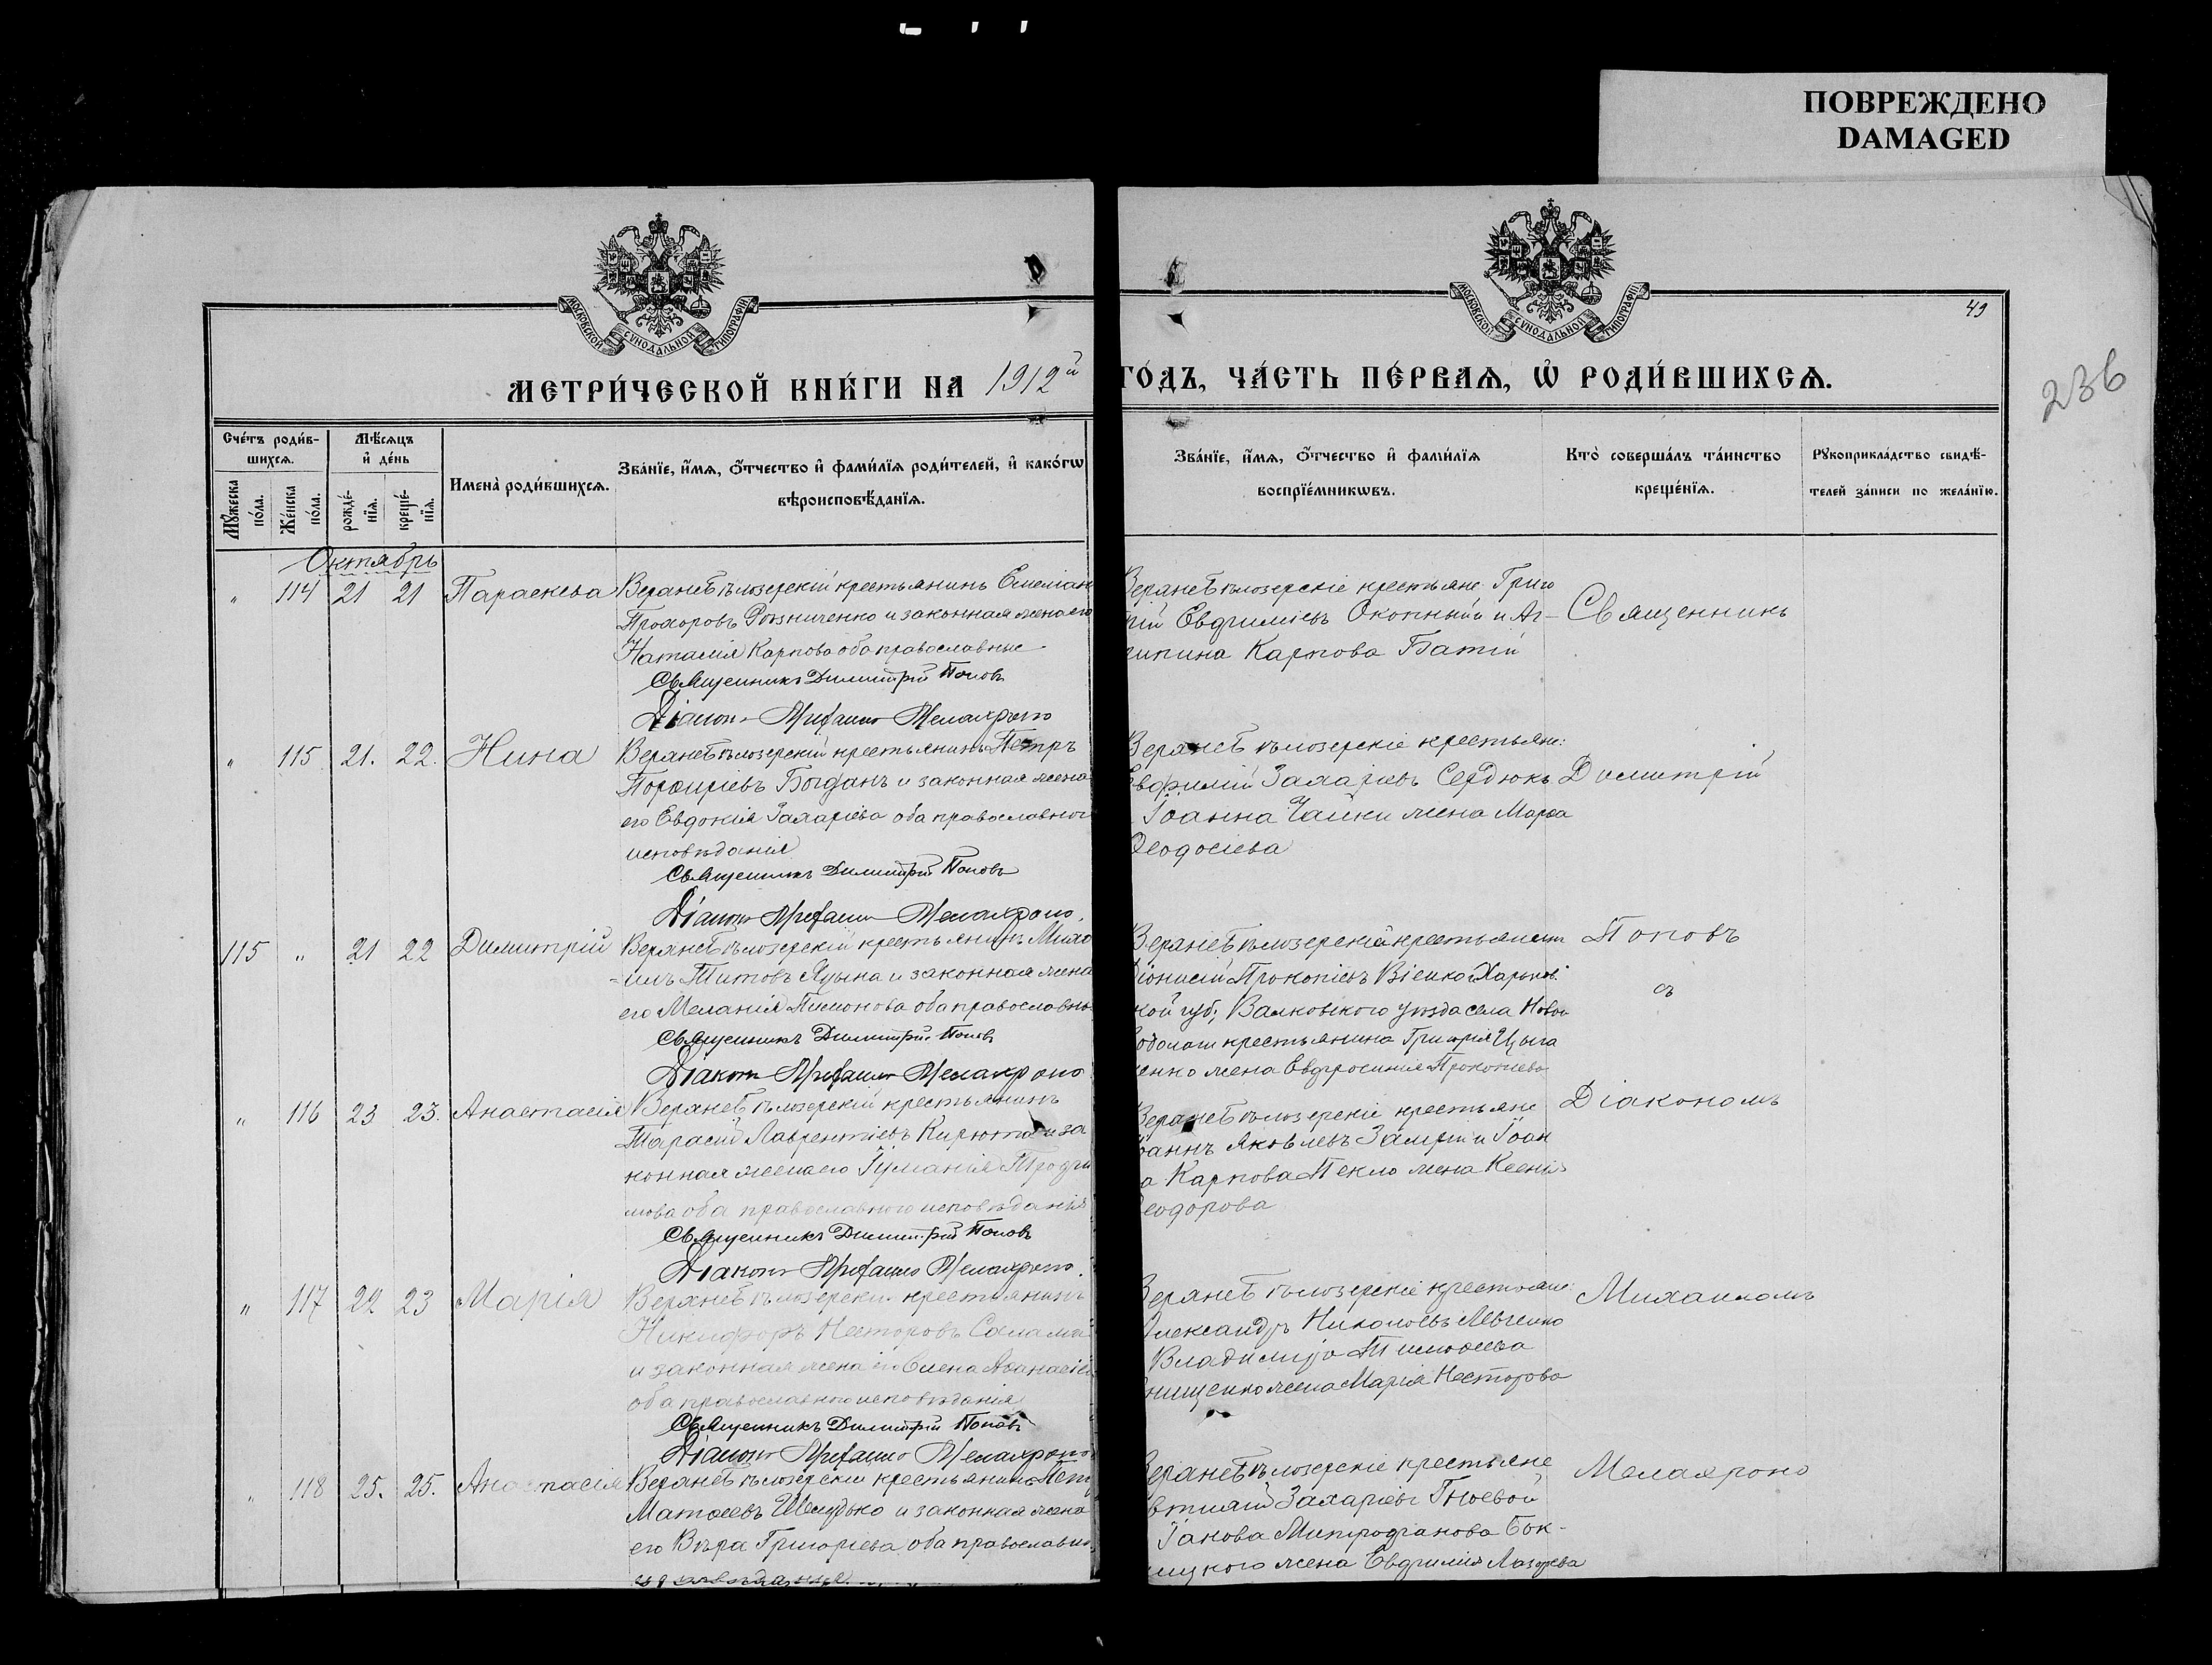 ПОВРЕЖДЕНО
DAMAGED
МОСКОВСКОЙ СѴНОДАЛЬНОЙ ТИПОГРАФІИ
МОСКОВСКОЙ СѴНОДАЛЬНОЙ ТИПОГРАФІИ
49
236
МЕТРИ́ЧЕСКОЙ КНИ́ГИ НА 1912й
ГО́ДЪ, ЧА́СТЬ ПЕ́РВАѦ, Ѡ҆ РОДИ́ВШИХСѦ.
Сче́тъ роди́в-
шихсѧ.
Мꙋ́жеска по́ла.
Же́нска по́ла.
Мѣ́сѧцъ
и҆ де́нь
рожде́-
нїѧ.
креще́-
нїѧ.
Имена̀ роди́вшихсѧ.
Зва́нїе, и҆́мѧ, ѻ҆́тчество и҆ фами́лїѧ роди́телей, и҆ како́гѡ
вѣроисповѣ́данїѧ.
Зва́нїе, и҆́мѧ, ѻ҆́тчество и҆ фами́лїѧ
воспрїе́мникѡвъ.
Кто̀ соверша́лъ та́инство
креще́нїѧ.
Рꙋкоприкла́дство свидѣ́-
телей за́писи по жела́нїю.
Октябрь
" 114 21 21 Параскева Верхнебѣлозерскій крестьянинъ Емеліан
Прохоровъ Рѣзниченко и законная жена его
Наталія Карпова оба православные
Священникъ Димитрій Поповъ
Діаконъ Михаилъ Мелахроно
Верхнебѣлозерскіе крестьяне: Григо
рій Евфиміевъ Окопный и Аг-
рипина Карпова Батій
Священникъ
" 115 21. 22. Нина Верхнебѣлозерскій крестьянинъ Петръ
Порфиріевъ Богданъ и законная жена
его Евдокія Захаріева оба православног
исповѣданія
Священникъ Димитрій Поповъ
Діаконъ Михаилъ Мелахроно.
Верхнебѣлозерскіе крестьяне:
Евфимій Захаріевъ Сердюкъ
Іоанна Чайки жена Марѳа
Ѳеодосіева
Димитрій
115 " 21 22 Димитрій Верхнебѣлозерскій крестьянинъ Миха
=илъ Титовъ Яцына и законная жена
его Меланія Пимонова оба православны
Священникъ Димитрій Поповъ
Діаконъ Михаилъ Мелахроно
Верхнебѣлозерскій крестьянинъ
Діонисій Прокопіевъ Віенко и Харьков:
ской губ., Валковскаго уѣзда села Новой
Водолаги крестьянина Григорія Цыга
ненко жена Евфросинія Прокопіева
Поповъ
съ
" 116 23 23. Анастасія Верхнебѣлозерскій крестьянинъ
Тарасій Лаврентіевъ Кирюта и за
конная жена его Іуліанія Трофи
мова оба православнаго исповѣданія
Священникъ Димитрій Поповъ
Діаконъ Михаилъ Мелахроно.
Верхнебѣлозерскіе крестьяне
Іоаннъ Яковлевъ Замрій и Іоан
а Карпова Пекло жена Ксенія
Ѳеодорова
Діакономъ
" 117 22 23 Марія Верхнебѣлозерскій крестьянинъ
Никифоръ Несторовъ Салама
и законная жена его Елена Аѳанасіев
оба православнаго исповѣданія
Священникъ Димитрій Поповъ
Діаконъ Михаилъ Мелахроно
Верхнебѣлозерскіе крестьяне:
Александръ Николаевъ Левченко
Владиміра Тимоѳеева
Онищенко жена Марія Несторова
Михаиломъ
" 118 25. 25. Анастасія Верхнебѣлозерскій крестьянинъ Петр
Матѳеевъ Шелудько и законная жена
его Вѣра Григоріева оба православна
исповѣданія
Верхнебѣлозерскіе крестьяне
Евтихій Захаріевъ Гноевой
Іакова Митрофанова Бок-
ицкого жена Евфимія Лазарева
Мелахроно